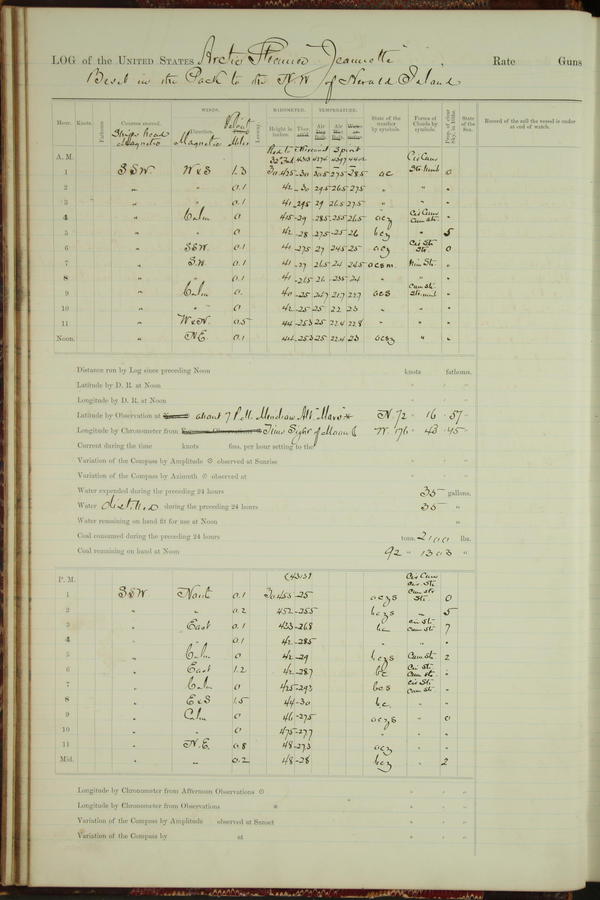 LOG of the UNITED STATES Arctic Steamer "Jeannette" Rate Guns
Beset in the Pack to the N.W. of Herald Island
WINDS. BAROMETER. TEMPERATURE.
Hour. Knots. Fathoms. Courses steered. Direction. Leeway Height in inches. State of the weather by symbols. Forms of Clouds by symbols. State of the Sea. Record of the sail the vessel is under at end of watch.
Ships head Magnetic Magnetic Miles
A. M. Cir Cum
1 SSW W & S 1.3 oc Str. Nimb 0
2 " " 0.1 42 30 29.5 26.5 27.5 " " "
3 " " 0.1 41 29.5 29 26.5 27.5 " " "
4 " Calm 0 415 29 28.5 25.5 26.5 ocz Cir Cum Cum Str. "
5 " " 0 42 28 27.5 25 26 bcz " 5
6 " SSW. 0.1 41 27.5 27 24.5 25 ocz Cir Str Str. 0
7 " S.W. 0.1 41 27 26.5 24 24.5 ocsm Nim Str. "
8 " " 0.1 41 26.5 26 23.5 24 " " "
9 " Calm 0. 40 25 24.7 21.7 22.7 ocs Cum Str Str. nimb "
10 " " 0 42 25 25 22 23 " " "
11 " W & N. 0.5 44 25.3 25 22.4 22.8 " " "
Noon. " N.E. 0.1 44 25.3 25 22.4 23 ocsz " "
Distance run by Log since preceding Noon knots fathoms.
Latitude by D. R. at Noon
Longitude by D. R. at Noon
Latitude by Observation at about 7 P.M. N. 72 16 57
Longitude by Chronometer from Time Sight of Moon W. 176 43 45
Current during the time knots fms. per hour setting to the
Variation of the Compass by Amplitude observed at Sunrise
Variation of the Compass by Azimuth observed at
Water expended during the preceding 24 hours 35 gallons.
Water distilled during the preceding 24 hours 35 "
Water remaining on hand fit for use at Noon "
Coal consumed during the preceding 24 hours tons. lbs.
Coal remaining on hand at Noon 92 " 1303 "
P. M. Cir Cum
1 SSW North 0.1 30.455 25 oczs Str. 0
2 " " 0.2 452 25.5 bczs " 5
3 " East 0.1 433 26.8 bc Cir Str. Cum Str 7
4 " " 0.1 42 28.5 " " "
5 " Calm 0 42 29 bczs Cum Str 2
6 " East 1.2 42 28.7 bc Cir St. Cum Str. "
7 " Calm 0 425 29.3 bcs Cir Str. Cum Str. "
8 " E & S 1.5 44 30 bc. " "
9 " Calm 0 46 27.5 oczs " 0
10 " " 0 475 27.7 " " "
11 " N.E. 0.8 48 27.3 ocz " "
Mid. " " 0.2 48 28 bcz " 2
Longitude by Chronometer from Afternoon Observations
Longitude by Chronometer from Observations
Variation of the Compass by Amplitude observed at Sunset
Variation of the Compass by at